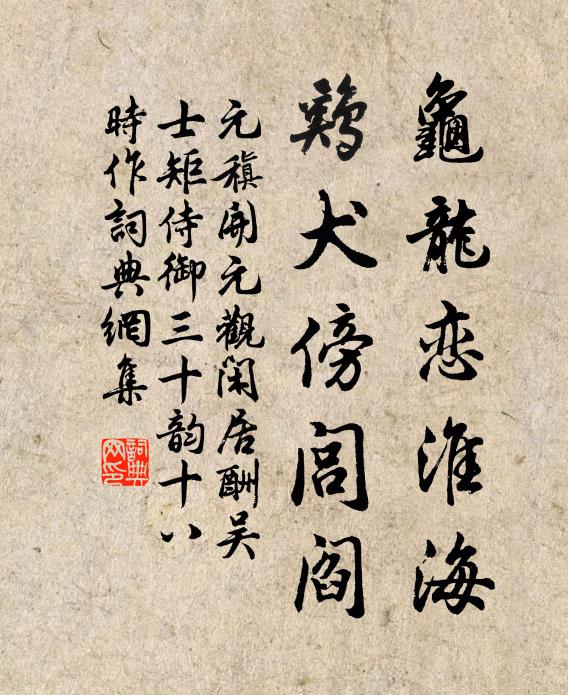 龜龍恋淮海
鷄犬傍閭閻
元稹開元觀閑居酬吴
士矩侍御三十韵十八
時作詞典網集
詞典
网印